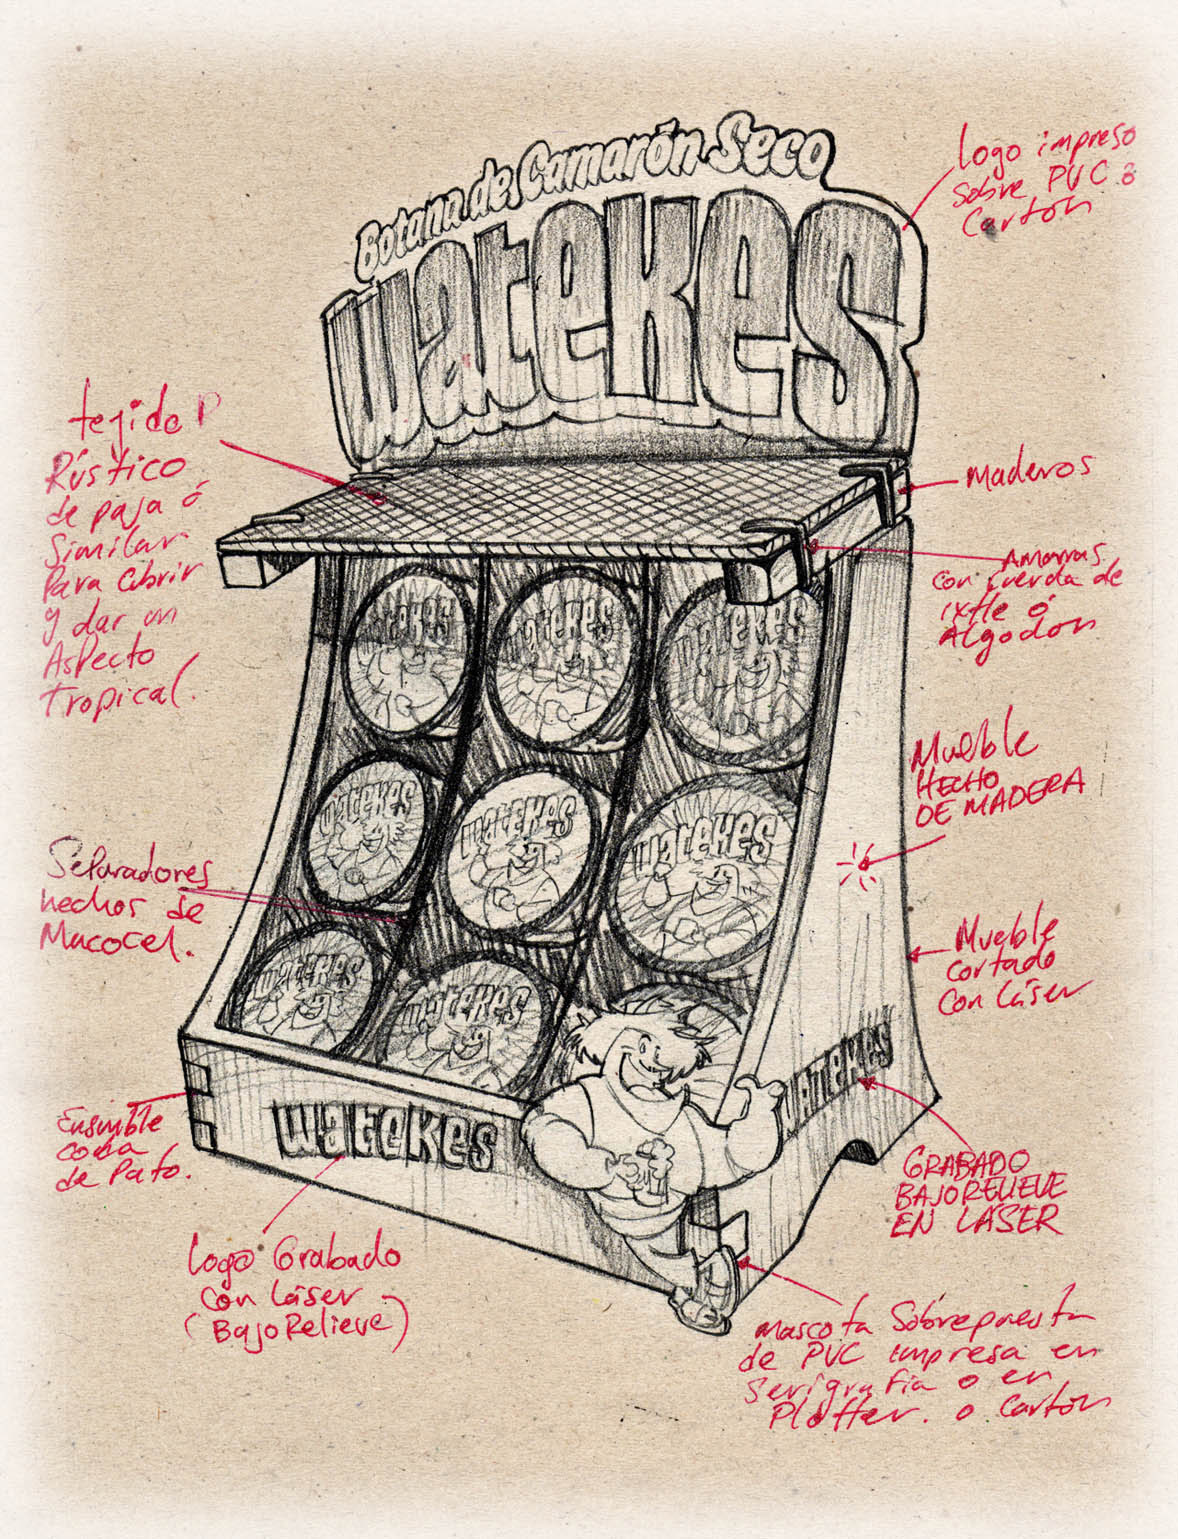 Botana de Camarón Seco
Watekes
Logo impreso
sobre PVC ó
Cartón
tejido
Rústico
de paja ó
Similar
Para cibrir
y dar un
Aspecto
tropical.
Maderos
Amarras
con cuerda de
ixtle ó
Algodon
Watekes
Watekes
Watekes
Mueble
HECHO
DE MADERA
Watekes
Watekes
Watekes
Separadores
hechos de
Macocel.
Mueble
cortado
con Láser
Watekes
Watekes
Watekes
Ensamble
cola
de Pato.
Watekes
GRABADO
BAJORELIEVE
EN LÁSER
Logo Grabado
con Láser
(BajoRelieve)
Mascota Sobrepuesta
de PVC impresa en
Serigrafia o en
Plotter. o Cartón